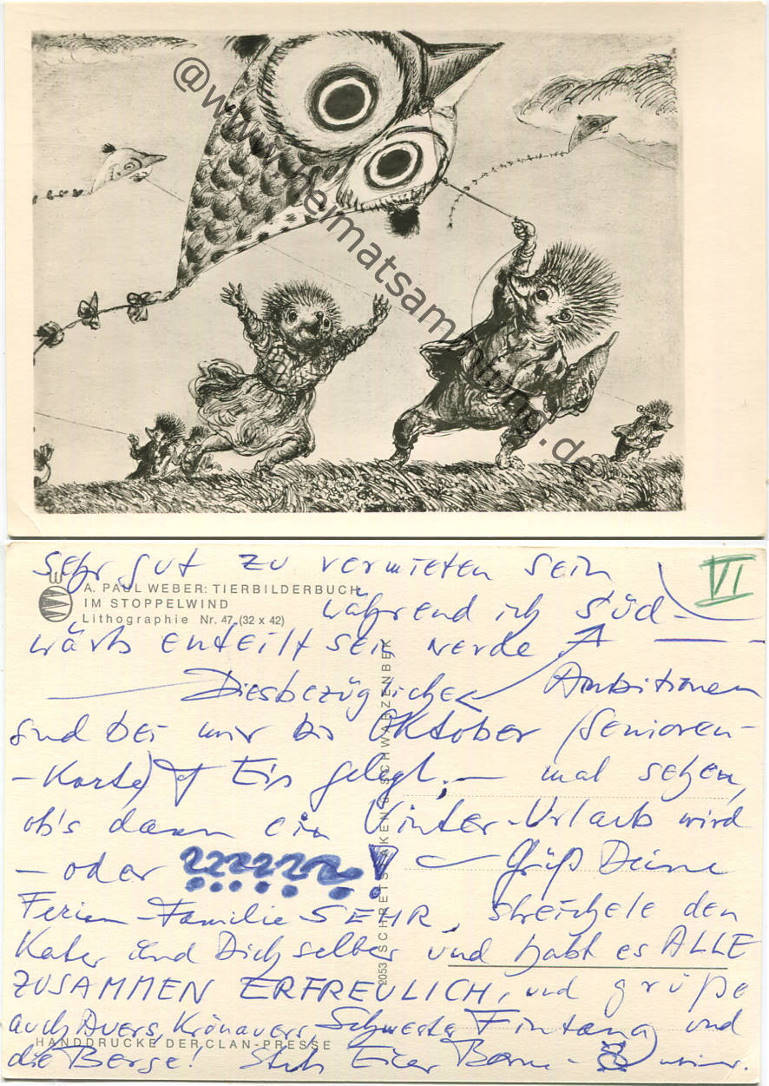 @www.heimatsammlung.de
sehr gut zu vermieten sein
VI
A. PAUL WEBER: TIERBILDERBUCH
IM STOPPELWIND
während ich süd-
Lithographie Nr. 47 (32 x 42)
wärts enteilt sein werde.
Diesbezügliche Ambitionen
sind bei mir bis Oktober (Senioren-
-Karte) Eis gelegt; – mal sehen,
ob's dann ein Winter-Urlaub wird
– oder ??????! Grüß Deine
Ferien-Familie SEHR, streichele den
Kater und Dich selber und habt es ALLE
ZUSAMMEN ERFREULICH, und grüße
auch Schwester und
HANDDRUCKE DER CLAN-PRESSE
die Berge! Euer
2053 SCHWARZENBEK